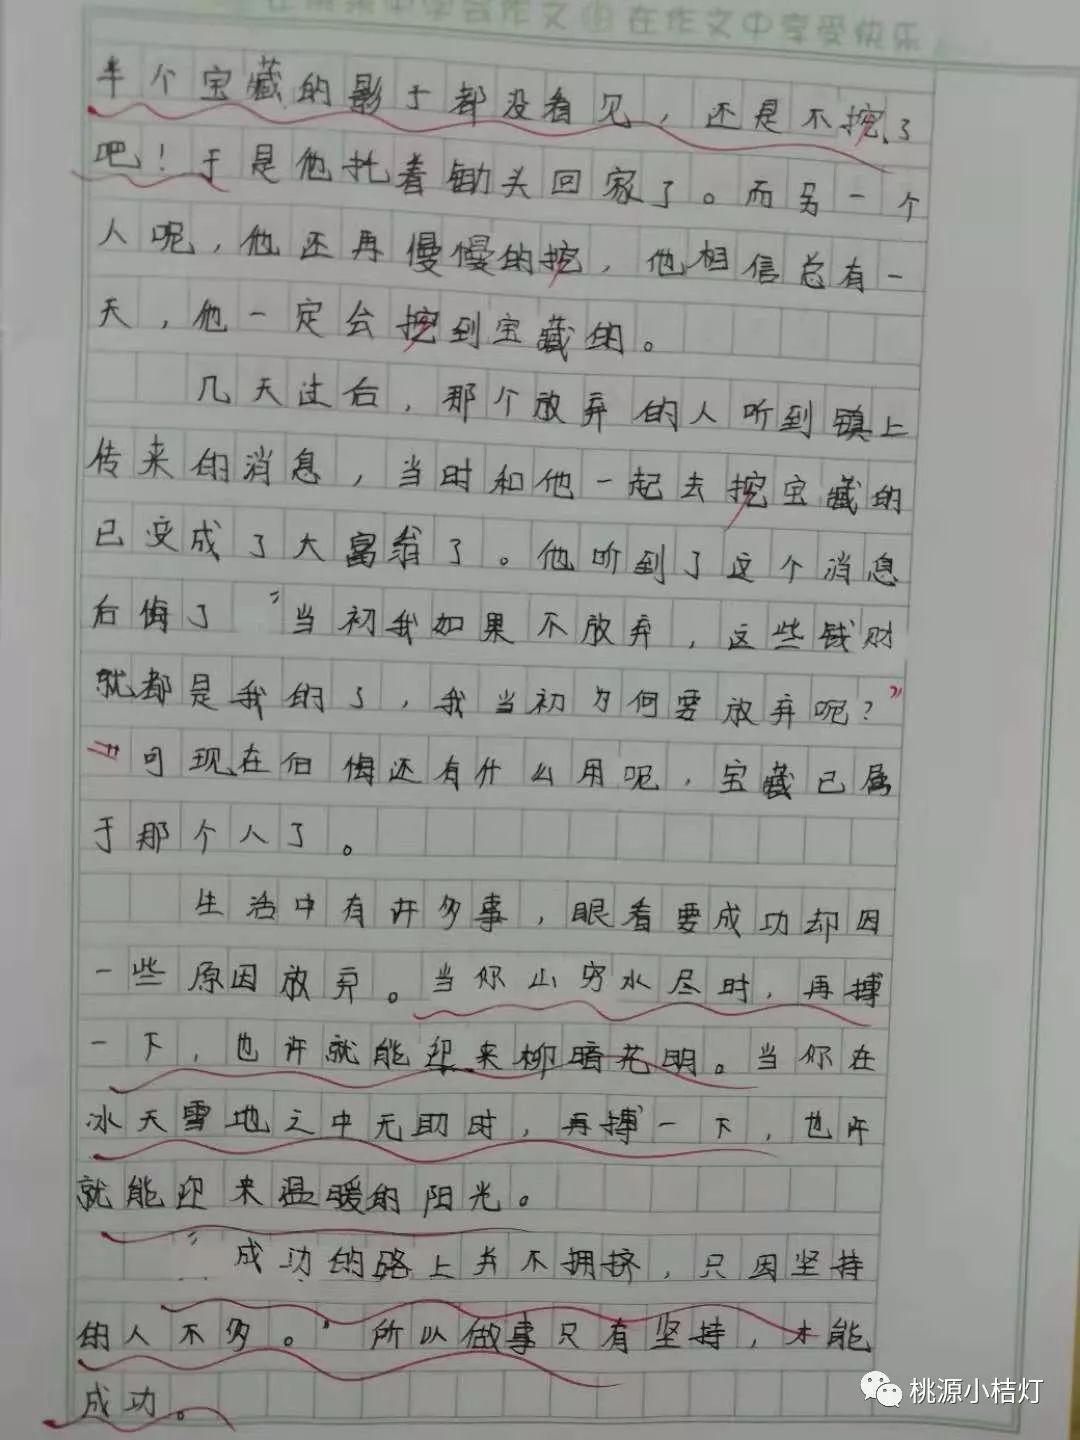 在作文中享受快乐
半个宝藏的影子都没看见，还是不挖了
吧！于是他扛着锄头回家了。而另一个
人呢，他还再慢慢的挖，他相信总有一
天，他一定会挖到宝藏的。
几天过后，那个放弃的人听到镇上
传来的消息，当时和他一起去挖宝藏的
已变成了大富翁了。他听到了这个消息
后悔了“当初我如果不放弃，这些钱财
就都是我的了，我当初为何要放弃呢？”
可现在后悔还有什么用呢，宝藏已属
于那个人了。
生活中有许多事，眼看要成功却因
一些原因放弃。当你山穷水尽时，再搏
一下，也许就能迎来柳暗花明。当你在
冰天雪地之中无助时，再搏一下，也许
就能迎来温暖的阳光。
“成功的路上并不拥挤，只因坚持
的人不多。”所以做事只有坚持，才能
成功。
桃源小桔灯